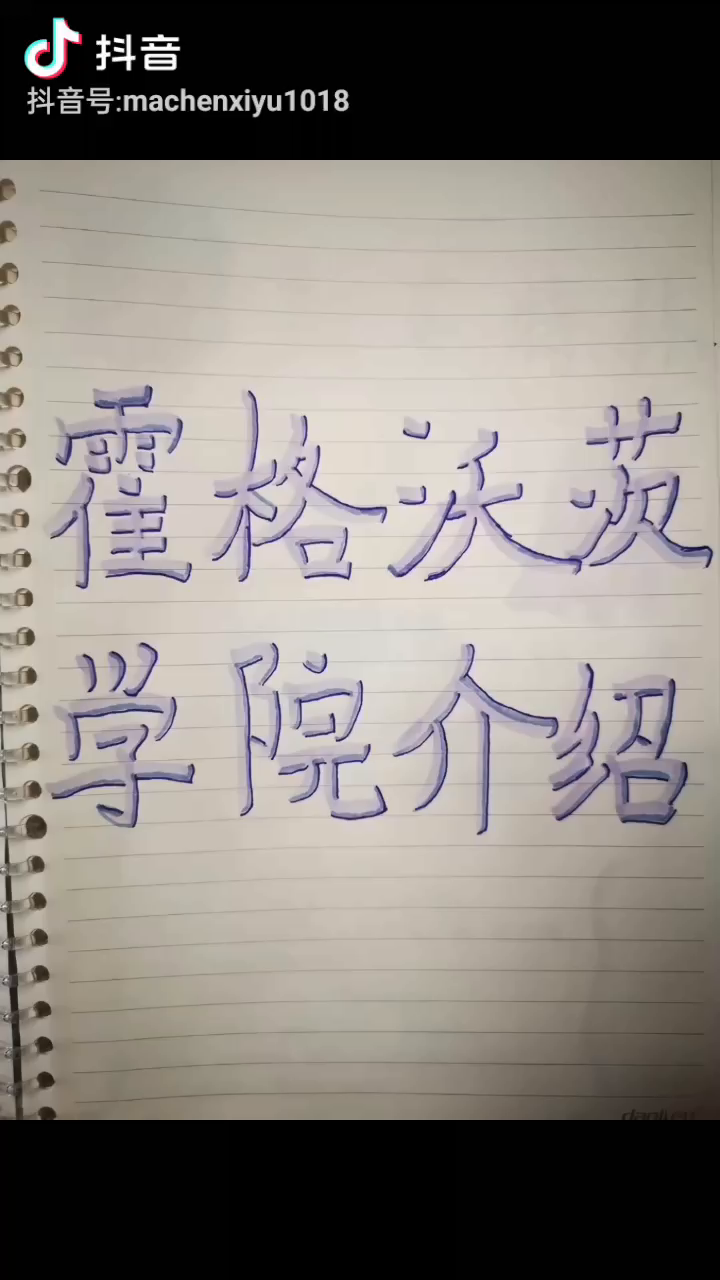 抖音
抖音号:machenxiyu1018
霍格沃茨
学院介绍